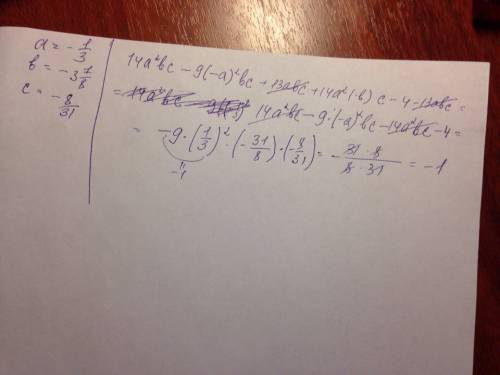 a = - 1/3
b = - 3 7/8
c = - 8/31
14a²bc - 9(-a)²bc + 13abc + 14a²(-b) c - 4 - 13abc =
= 14a²bc - 9·(-a)²bc - 14a²bc - 4 =
= -9 · (1/3)² · (-31/8) · (-8/31) = - 31·8/8·31 = -1
-1